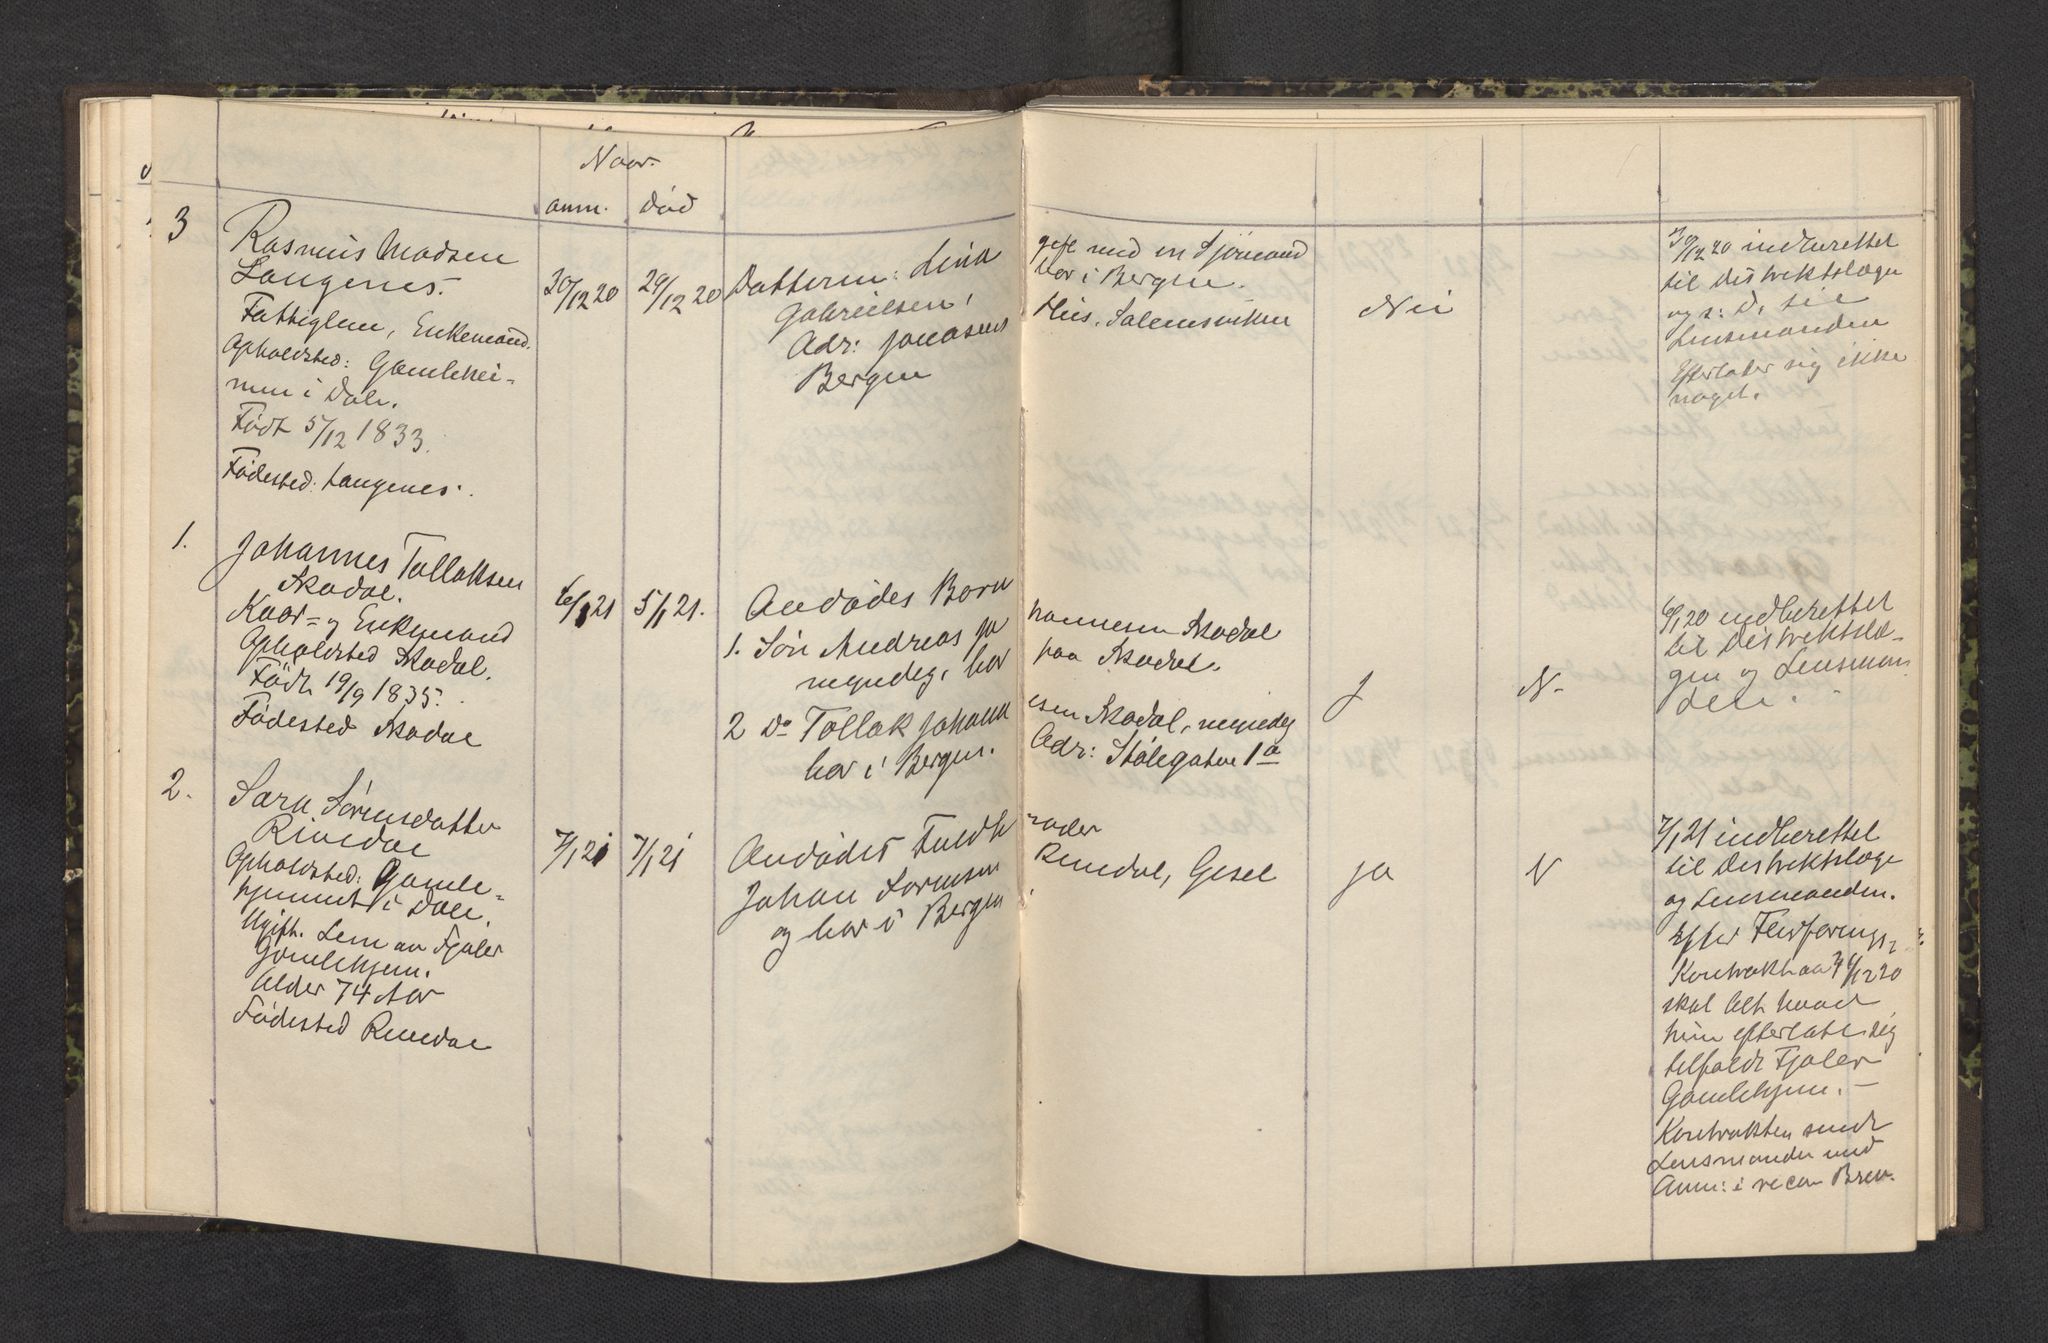 Naar
anm. død
3
Rasmus Madsen
Langenes.
Fattiglem, Enkemand.
Opholdsted: Gamlehei-
men i Dale.
Født 5/12 1833.
Fødested: Langenes.
30/12 20
29/12 20
Datteren: Lina
Gabrielsen,
Adr: Jonasens
Bergen
gift med en Sjömand
bor i Bergen.
Hus, Salemsvikken
Nei
30/12 20 indberettet
til Distriktslæge
og s: D. til
Lensmanden
Efterlader sig ikke
noget.
1.
Johannes Tollaksen
Skadal.
Kaar= og Enkemand
Opholdsted Skadal.
Født 19/9 1835.
Fødested Skadal
6/1 21
5/1 21.
Avdødes Børn
1. Søn Andreas Jo
hannesen Skadal
myndig, bor
paa Skadal.
2 Do Tollak Johann
esen Skadal, myndig
bor i Bergen.
Adr: Stölegaten 1a
J
N.
6/1 20 indberettet
til Distriktslæ-
gen og Lensman
den.
2.
Sara Sörensdatter
Rivedal
Opholdsted: Gamle-
hjemmet i Dale.
Ugift. Lem av Fjaler
Gamlehjem.
Alder 74 Aar
Fødested Rivedal
7/1 21
7/1 21
Avdødes Fuldb
røder
Johan Sørensen
Rivedal, Gesel
og bor i Bergen
ja
N
7/1 21 indberettet
til Distriktslæge
og Lensmanden.
Efter
Kontrakt av 4/12 20
skal alt hvad
hun efterlate sig
tilfalde Fjaler
Gamlehjem. —
Kontrakten sendt
Lensmanden med
Anm: i recom Brev.